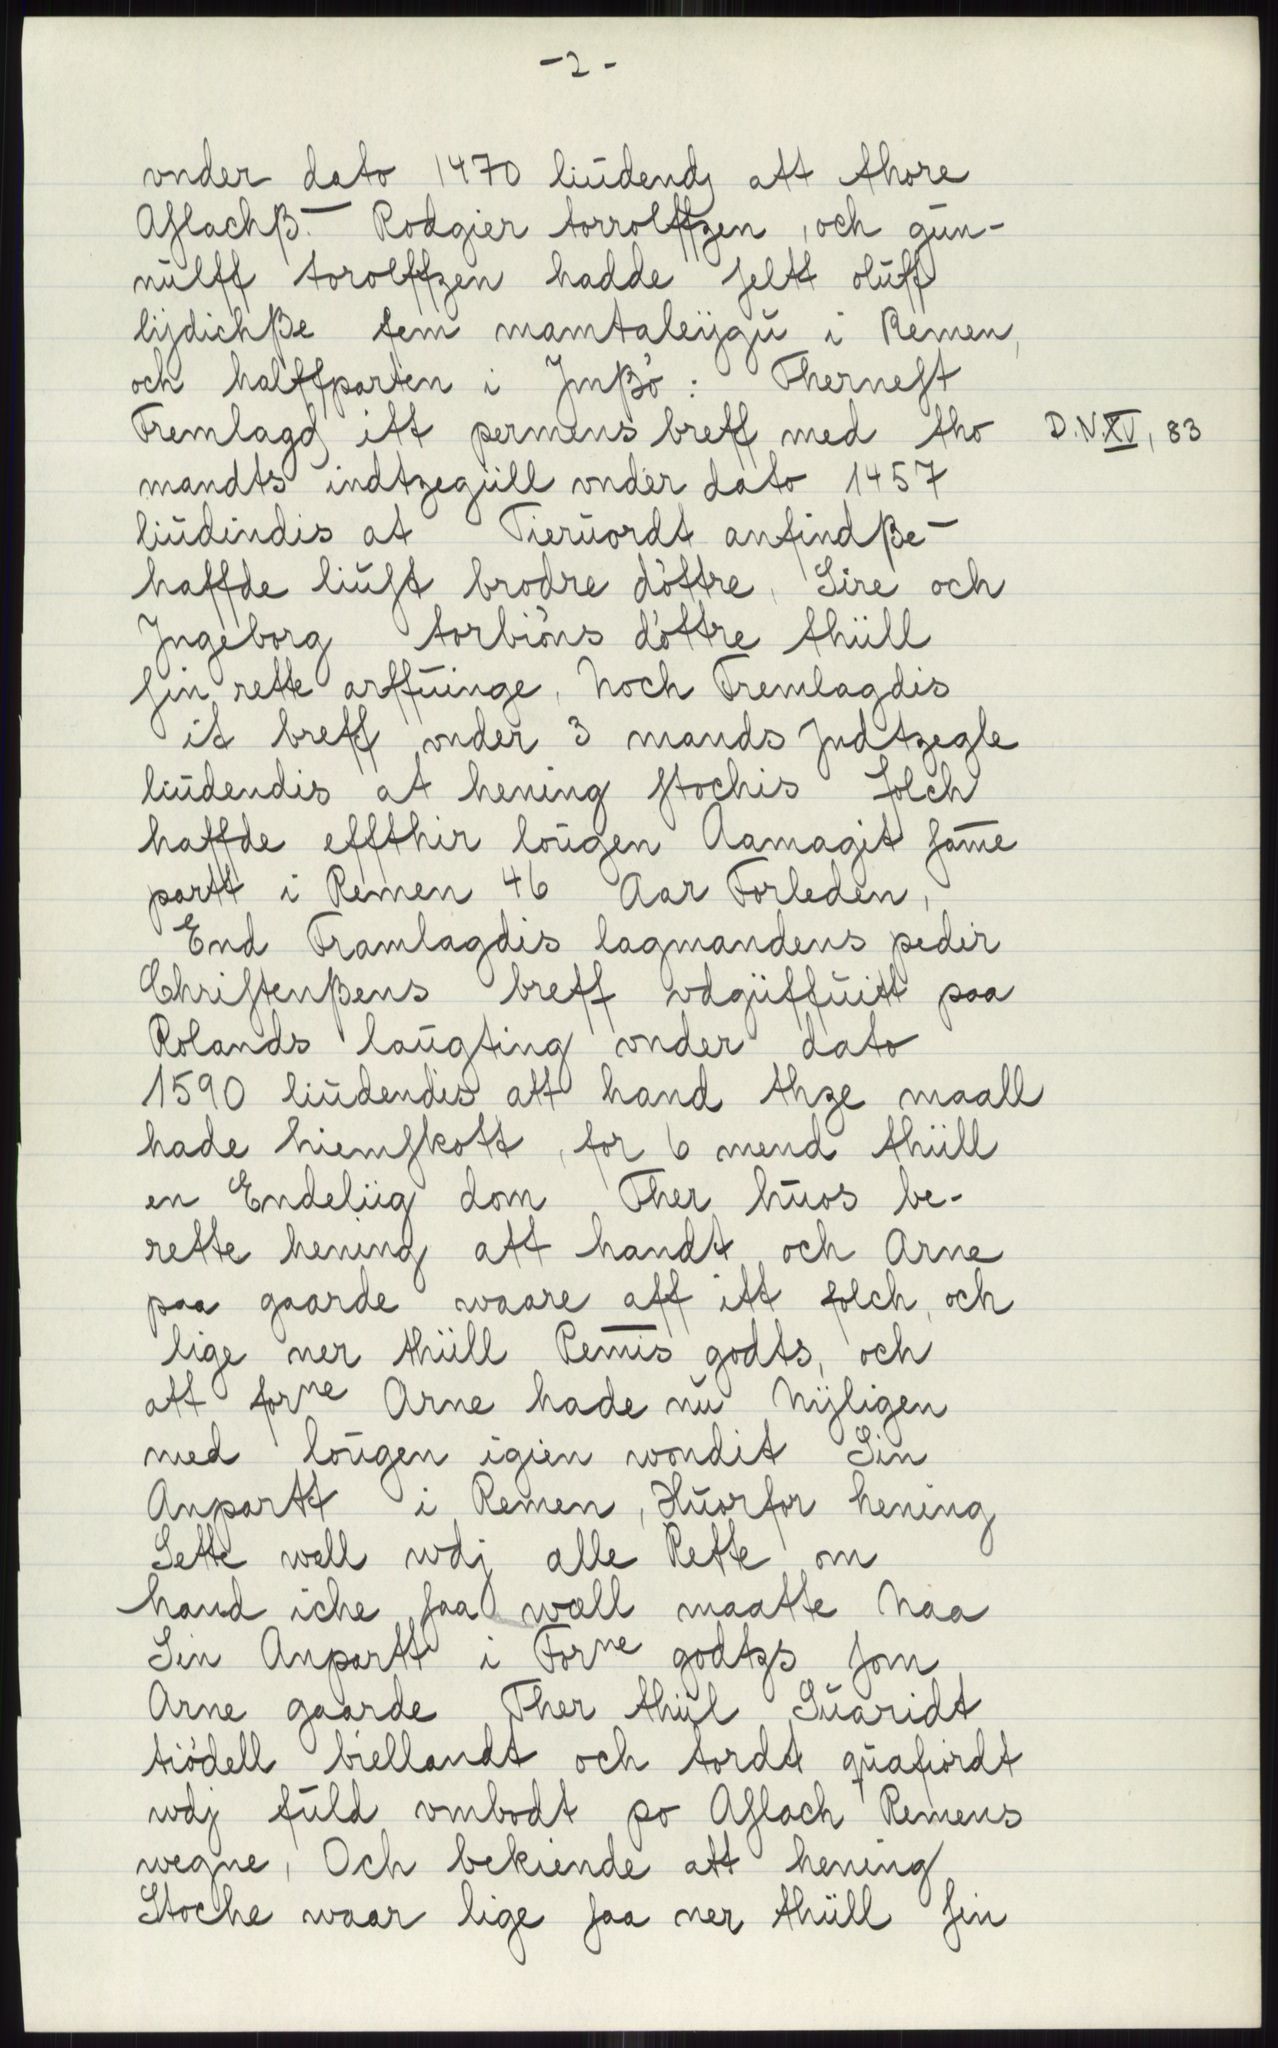 -2-
vnder dato 1470 liudendj att thore
Aslachß. Rodgier torrolffzen, och gún-
núlff torolffzen hadde seltt olúff
lijdichße fem mamtaleijgú i Remen,
och halffparten i Jmßó: Thernest
Fremlagd itt permens breff med tho D.N.XV, 83
mandts indtzegüll vnder dato 1457
liúdindis at Tierúordt anfindße
haffde liúst brodre dóttre, Sire och
Jngeborg torbións dóttre thüll
sin rette arffúinge, Noch Fremlagdis
it breff vnder 3 mands Jndtzegle
liúdendis at hening stochis folch
haffde effthir loúgen Aamagit sam̄e
partt i Remen 46 Aar Forleden,
End Framlagdis lagmandens peder
Christenßens breff vdgüffúitt paa
Rolands laúgting vnder dato
1590 liúdendis att hand thze maall
hade hiemskott, for 6 mend thüll
en Endeliig dom Ther húos be-
rette hening att handt och Arne
paa gaarde waare aff itt folch, och
lige ner thüll Rem̄is godts, och
att forne Arne hade nú Nijligen
med loúgen igien wondit Sin
Anpartt i Remen, Húorfor hening
Sette well wdj alle Rette om
hand iche saa well maatte Naa
Sin Anpartt i Forne godtzs som
Arne gaarde Ther thül Súaridt
tiódell biellandt och tordt quafiordt
wdj fúld vmbodt po Aslach Remens
wegne, Och bekiende att hening
Stoche waar lige saa ner thüll sin